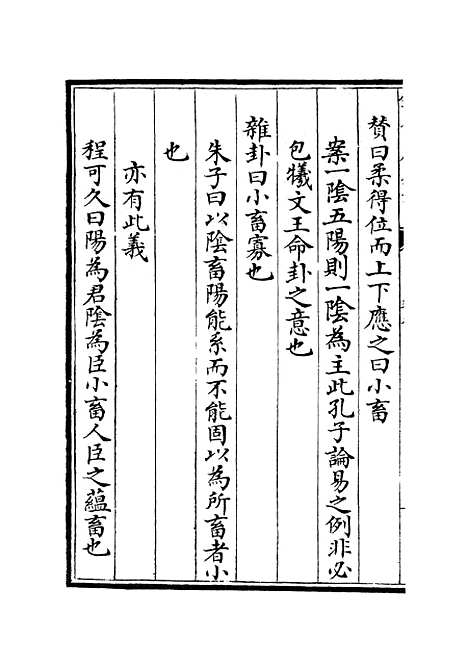 賛曰柔得位而上下應之曰小畜
案一陰五陽則一陰為主此孔子論易之例非必
包犧文王命卦之意也
雜卦曰小畜寡也
朱子曰以陰畜陽能系而不能固以為所畜者小
也
亦有此義
程可久曰陽為君陰為臣小畜人臣之蘊畜也